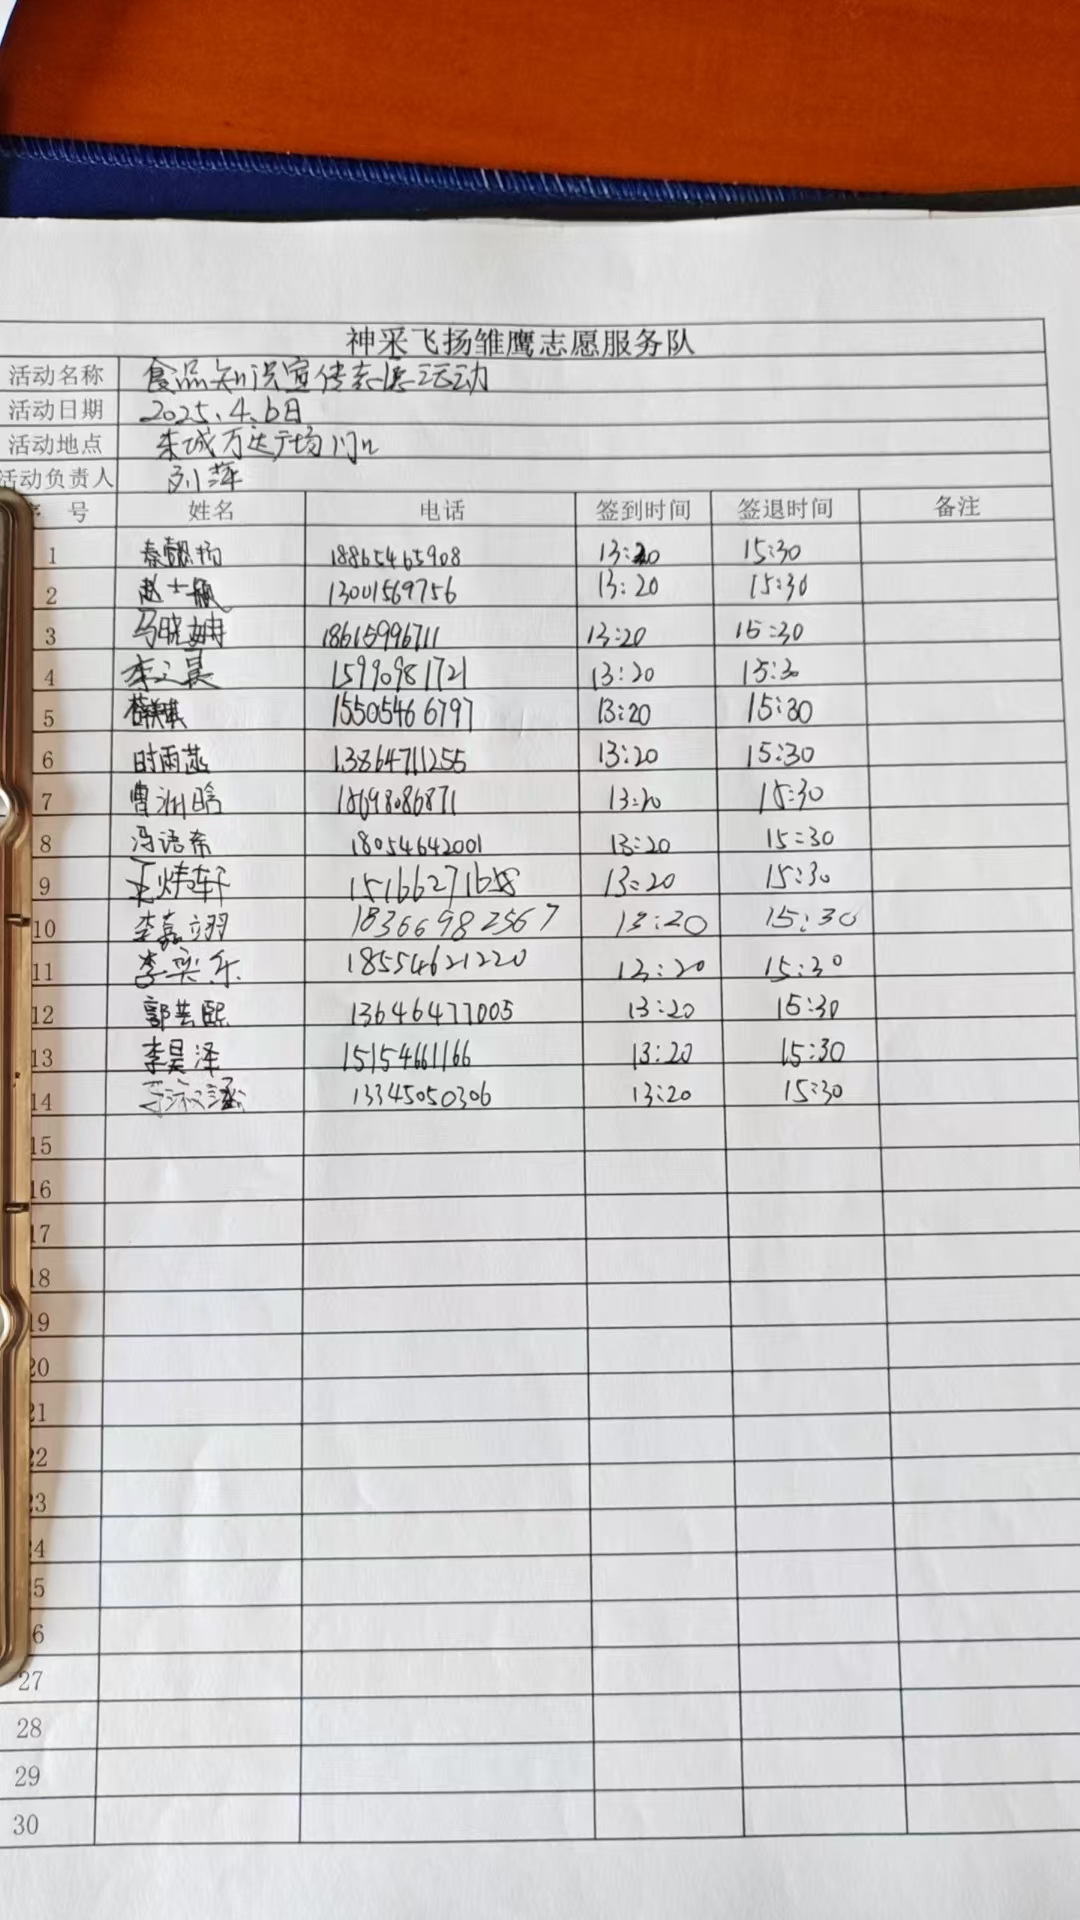 神采飞扬雏鹰志愿服务队
活动名称 食品知识宣传志愿活动
活动日期 2025.4.6日
活动地点 东城万达广场门口
活动负责人 刘萍
序号 姓名 电话 签到时间 签退时间 备注
1 秦懿扬 18865465908 13:20 15:30
2 赵士 13001569756 13:20 15:30
3 马晓 18615996711 13:20 15:30
4 李之昊 15990981721 13:20 15:30
5 15505466797 13:20 15:30
6 时雨菡 13864711255 13:20 15:30
7 曹洲晗 18698086871 13:20 15:30
8 冯语希 18054642001 13:20 15:30
9 王炜轩 15166271658 13:20 15:30
10 李嘉翊 18366982567 13:20 15:30
11 李奕乐 18554621220 13:20 15:30
12 郭芸熙 13646477005 13:20 15:30
13 李昊泽 15154661166 13:20 15:30
14 涵 13345050306 13:20 15:30
15
16
17
18
19
20
21
22
23
24
25
26
27
28
29
30